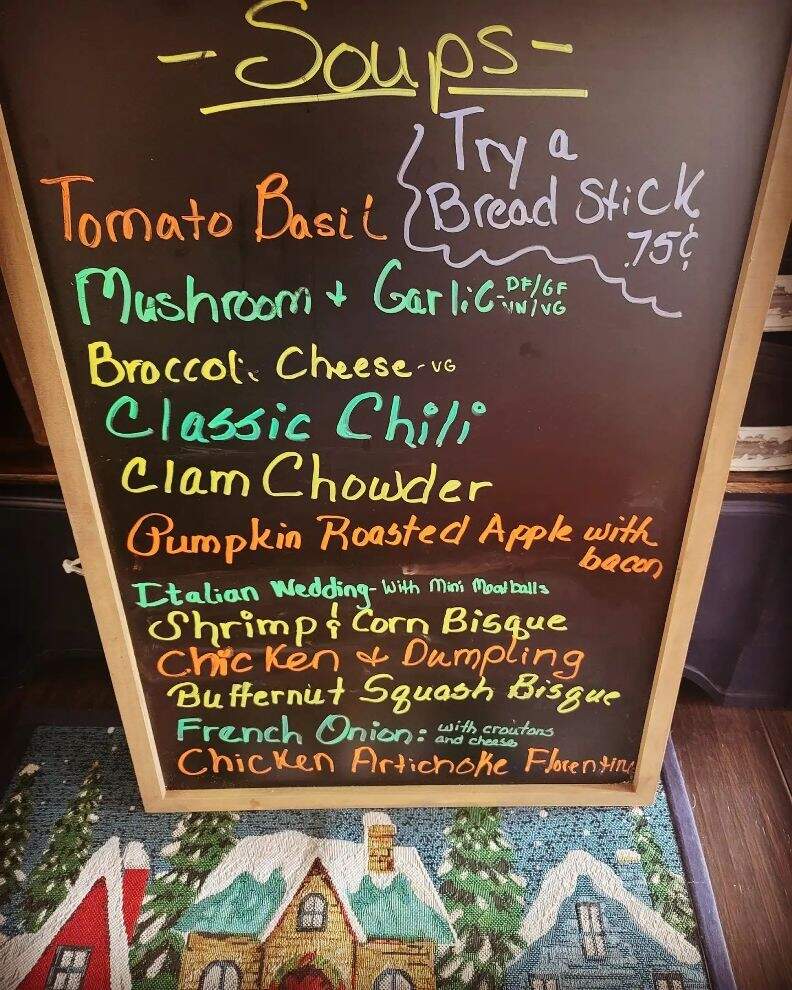 - Soups -
Try a
Bread Stick
.75¢
Tomato Basil
Mushroom + Garlic - DF/GF
VN/VG
Broccoli Cheese - VG
Classic Chili
Clam Chowder
Pumpkin Roasted Apple with
bacon
Italian Wedding - with Mini Meatballs
Shrimp & Corn Bisque
Chicken & Dumpling
Butternut Squash Bisque
French Onion: with croutons
and cheese
Chicken Artichoke Florentine